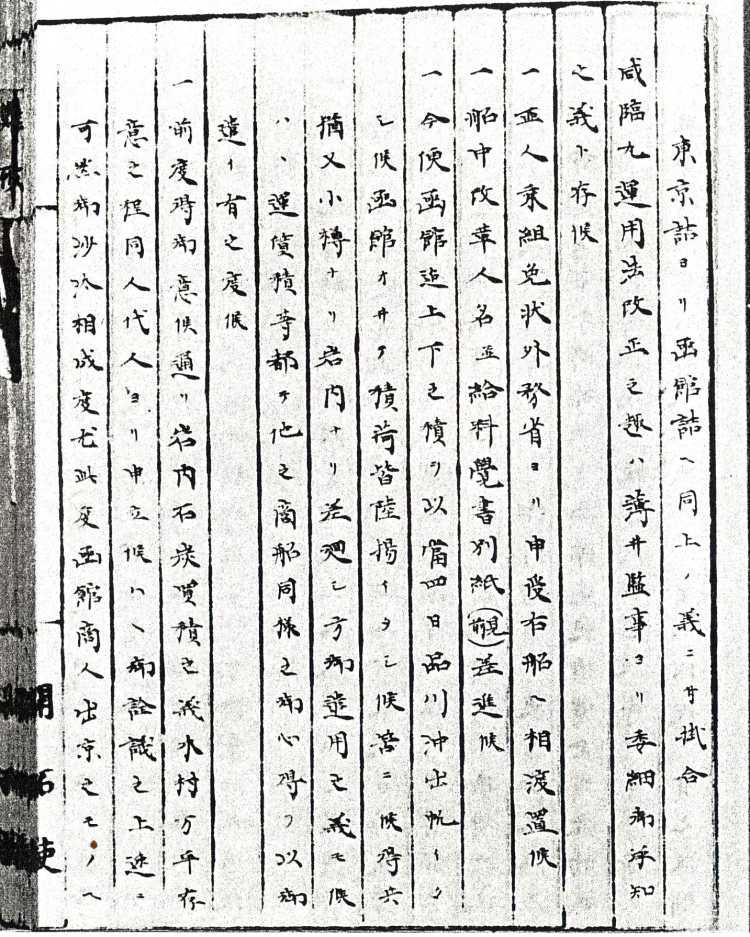 東京詰ヨリ函館詰ヘ同上ノ義ニ付掛合
咸臨丸運用法改正之趣ハ薄井監事ヨリ委細御承知
之義ト存候
一亜人乗組免状外務省ヨリ申受右船ヘ相渡置候
一船中改革人名並給料覚書別紙(覩)差進候
一今便函館迄上下之積ヲ以當四日品川沖出帆イタ
シ候函館オヰテ積荷皆陸揚イタシ候筈ニ候得共
猶又小樽ナリ岩内ナリ差廻シ方御遣用之義モ候
ハヽ運賃積等都テ他之商船同様之御心得ヲ以御
遣イ有之度候
一前度時御意候通リ岩内石炭買積之義水村万年存
意之程同人代人ヨリ申立候ハヽ御詮議之上速ニ
可然御沙汰相成度尤此度函館商人出京之モノヘ
開拓使